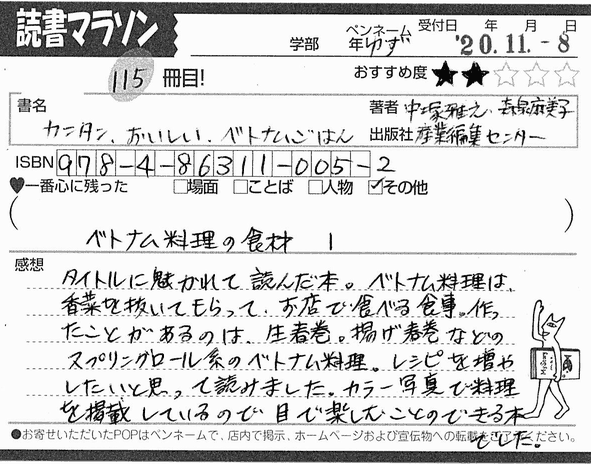 読書マラソン
学部 年 ペンネーム ゆず 受付日 年 月 日
'20.11.-8
115 冊目!
おすすめ度 ★★☆☆☆
書名
著者 中塚雅之、森泉麻美子
カンタン、おいしい、ベトナムごはん 出版社 産業編集センター
ISBN 978-4-86311-005-2
♥一番心に残った □場面 □ことば □人物 ☑その他
(ベトナム料理の食材 1)
感想
タイトルに魅かれて読んだ本。ベトナム料理は、
香菜を抜いてもらって、お店で食べる食事。作っ
たことがあるのは、生春巻。揚げ春巻などの
スプリングロール系のベトナム料理。レシピを増や
したいと思って読みました。カラー写真で料理
を掲載しているので目で楽しむことのできる本
でした。
●お寄せいただいたPOPはペンネームで、店内で掲示、ホームページおよび宣伝物への転載をご了承ください。